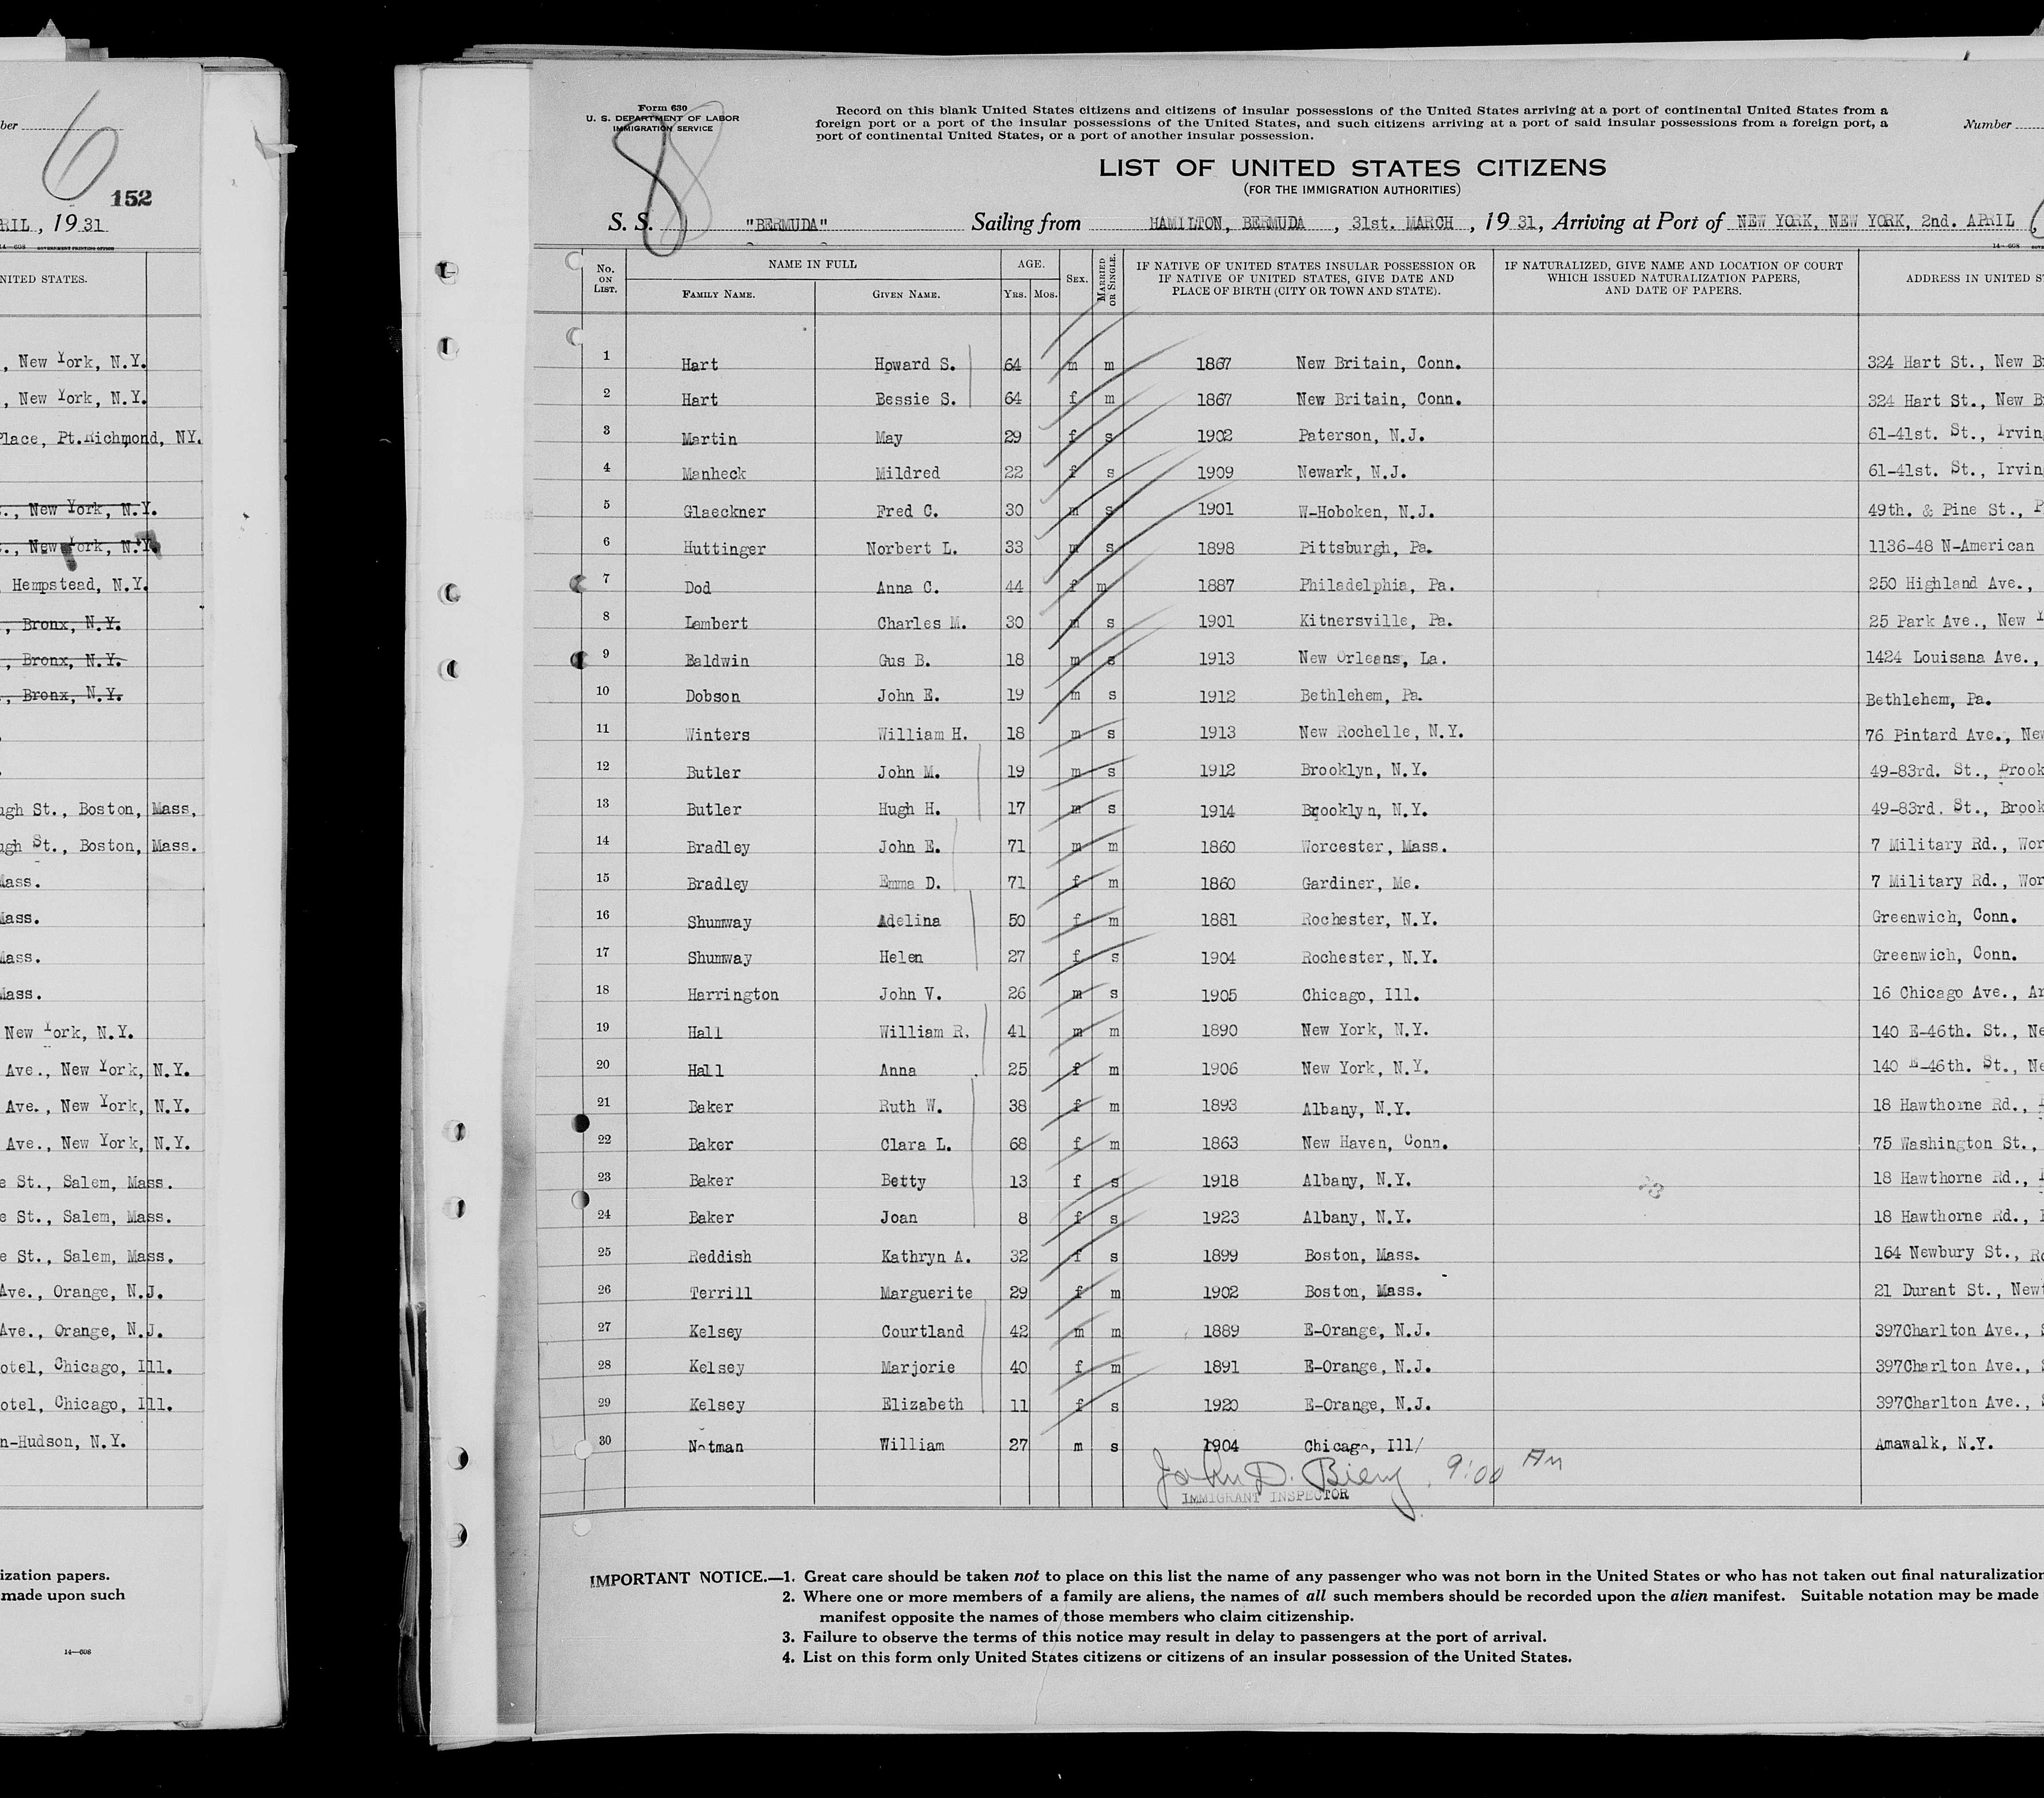 ber
6
152
RIL, 19 31
14—608 GOVERNMENT PRINTING OFFICE
NITED STATES.
, New York, N.Y.
, New York, N.Y.
Place, Pt.Richmond, NY.
., New York, N.Y.
., New York, N.Y.
Hempstead, N.Y.
, Bronx, N.Y.
, Bronx, N.Y.
, Bronx, N.Y.
ugh St., Boston, Mass,
ugh St., Boston, Mass.
Mass.
Mass.
Mass.
Mass.
New York, N.Y.
Ave., New York, N.Y.
Ave., New York, N.Y.
Ave., New York, N.Y.
e St., Salem, Mass.
e St., Salem, Mass.
e St., Salem, Mass.
Ave., Orange, N.J.
Ave., Orange, N.J.
otel, Chicago, Ill.
otel, Chicago, Ill.
n-Hudson, N.Y.
ization papers.
made upon such
14—608
Form 630
U. S. DEPARTMENT OF LABOR
IMMIGRATION SERVICE
8
Record on this blank United States citizens and citizens of insular possessions of the United States arriving at a port of continental United States from a
foreign port or a port of the insular possessions of the United States, and such citizens arriving at a port of said insular possessions from a foreign port, a
port of continental United States, or a port of another insular possession.
Number
LIST OF UNITED STATES CITIZENS
(FOR THE IMMIGRATION AUTHORITIES)
S. S. "BERMUDA" Sailing from HAMILTON, BERMUDA , 31st. MARCH , 19 31, Arriving at Port of NEW YORK, NEW YORK, 2nd. APRIL ,
14—608
No. ON LIST. NAME IN FULL FAMILY NAME. GIVEN NAME. AGE. YRS. MOS. SEX. MARRIED OR SINGLE. IF NATIVE OF UNITED STATES INSULAR POSSESSION OR IF NATIVE OF UNITED STATES, GIVE DATE AND PLACE OF BIRTH (CITY OR TOWN AND STATE). IF NATURALIZED, GIVE NAME AND LOCATION OF COURT WHICH ISSUED NATURALIZATION PAPERS, AND DATE OF PAPERS. ADDRESS IN UNITED ST
1 Hart Howard S. 64 m m 1867 New Britain, Conn. 324 Hart St., New B
2 Hart Bessie S. 64 f m 1867 New Britain, Conn. 324 Hart St., New B
3 Martin May 29 f s 1902 Paterson, N.J. 61-41st. St., Irvin
4 Manheck Mildred 22 f s 1909 Newark, N.J. 61-41st. St., Irvin
5 Glaeckner Fred C. 30 m s 1901 W-Hoboken, N.J. 49th. & Pine St., P
6 Huttinger Norbert L. 33 m s 1898 Pittsburgh, Pa. 1136-48 N-American
7 Dod Anna C. 44 f m 1887 Philadelphia, Pa. 250 Highland Ave.,
8 Lambert Charles M. 30 m s 1901 Kitnersville, Pa. 25 Park Ave., New Y
9 Baldwin Gus B. 18 m s 1913 New Orleans, La. 1424 Louisana Ave.,
10 Dobson John E. 19 m s 1912 Bethlehem, Pa. Bethlehem, Pa.
11 Winters William H. 18 m s 1913 New Rochelle, N.Y. 76 Pintard Ave., New
12 Butler John M. 19 m s 1912 Brooklyn, N.Y. 49-83rd. St., Brook
13 Butler Hugh H. 17 m s 1914 Brooklyn, N.Y. 49-83rd. St., Brook
14 Bradley John E. 71 m m 1860 Worcester, Mass. 7 Military Rd., Wor
15 Bradley Emma D. 71 f m 1860 Gardiner, Me. 7 Military Rd., Wor
16 Shumway Adelina 50 f m 1881 Rochester, N.Y. Greenwich, Conn.
17 Shumway Helen 27 f s 1904 Rochester, N.Y. Greenwich, Conn.
18 Harrington John V. 26 m s 1905 Chicago, Ill. 16 Chicago Ave., Ar
19 Hall William R. 41 m m 1890 New York, N.Y. 140 E-46th. St., Ne
20 Hall Anna 25 f m 1906 New York, N.Y. 140 E-46th. St., Ne
21 Baker Ruth W. 38 f m 1893 Albany, N.Y. 18 Hawthorne Rd.,
22 Baker Clara L. 68 f m 1863 New Haven, Conn. 75 Washington St.,
23 Baker Betty 13 f s 1918 Albany, N.Y. 18 Hawthorne Rd.,
24 Baker Joan 8 f s 1923 Albany, N.Y. 18 Hawthorne Rd.,
25 Reddish Kathryn A. 32 f s 1899 Boston, Mass. 164 Newbury St., Ro
26 Terrill Marguerite 29 f m 1902 Boston, Mass. 21 Durant St., Newt
27 Kelsey Courtland 42 m m 1889 E-Orange, N.J. 397Charlton Ave., S
28 Kelsey Marjorie 40 f m 1891 E-Orange, N.J. 397Charlton Ave., S
29 Kelsey Elizabeth 11 f s 1920 E-Orange, N.J. 397Charlton Ave., S
30 Notman William 27 m s 1904 Chicago, Ill/ Amawalk, N.Y.
John D. 9:00 AM
IMMIGRANT INSPECTOR
IMPORTANT NOTICE.—1. Great care should be taken not to place on this list the name of any passenger who was not born in the United States or who has not taken out final naturalization
2. Where one or more members of a family are aliens, the names of all such members should be recorded upon the alien manifest. Suitable notation may be made
manifest opposite the names of those members who claim citizenship.
3. Failure to observe the terms of this notice may result in delay to passengers at the port of arrival.
4. List on this form only United States citizens or citizens of an insular possession of the United States.